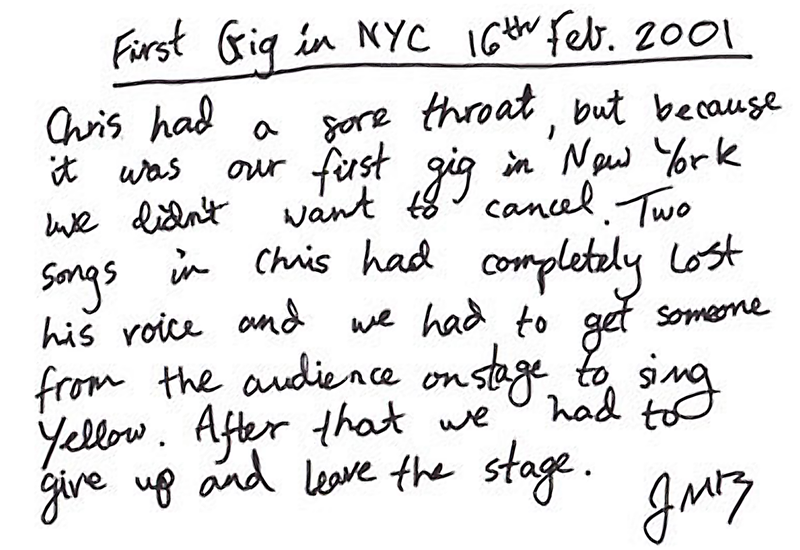 First Gig in NYC 16th Feb. 2001
Chris had a sore throat, but because
it was our first gig in New York
we didn't want to cancel. Two
songs in Chris had completely lost
his voice and we had to get someone
from the audience onstage to sing
Yellow. After that we had to
give up and leave the stage.
JMB